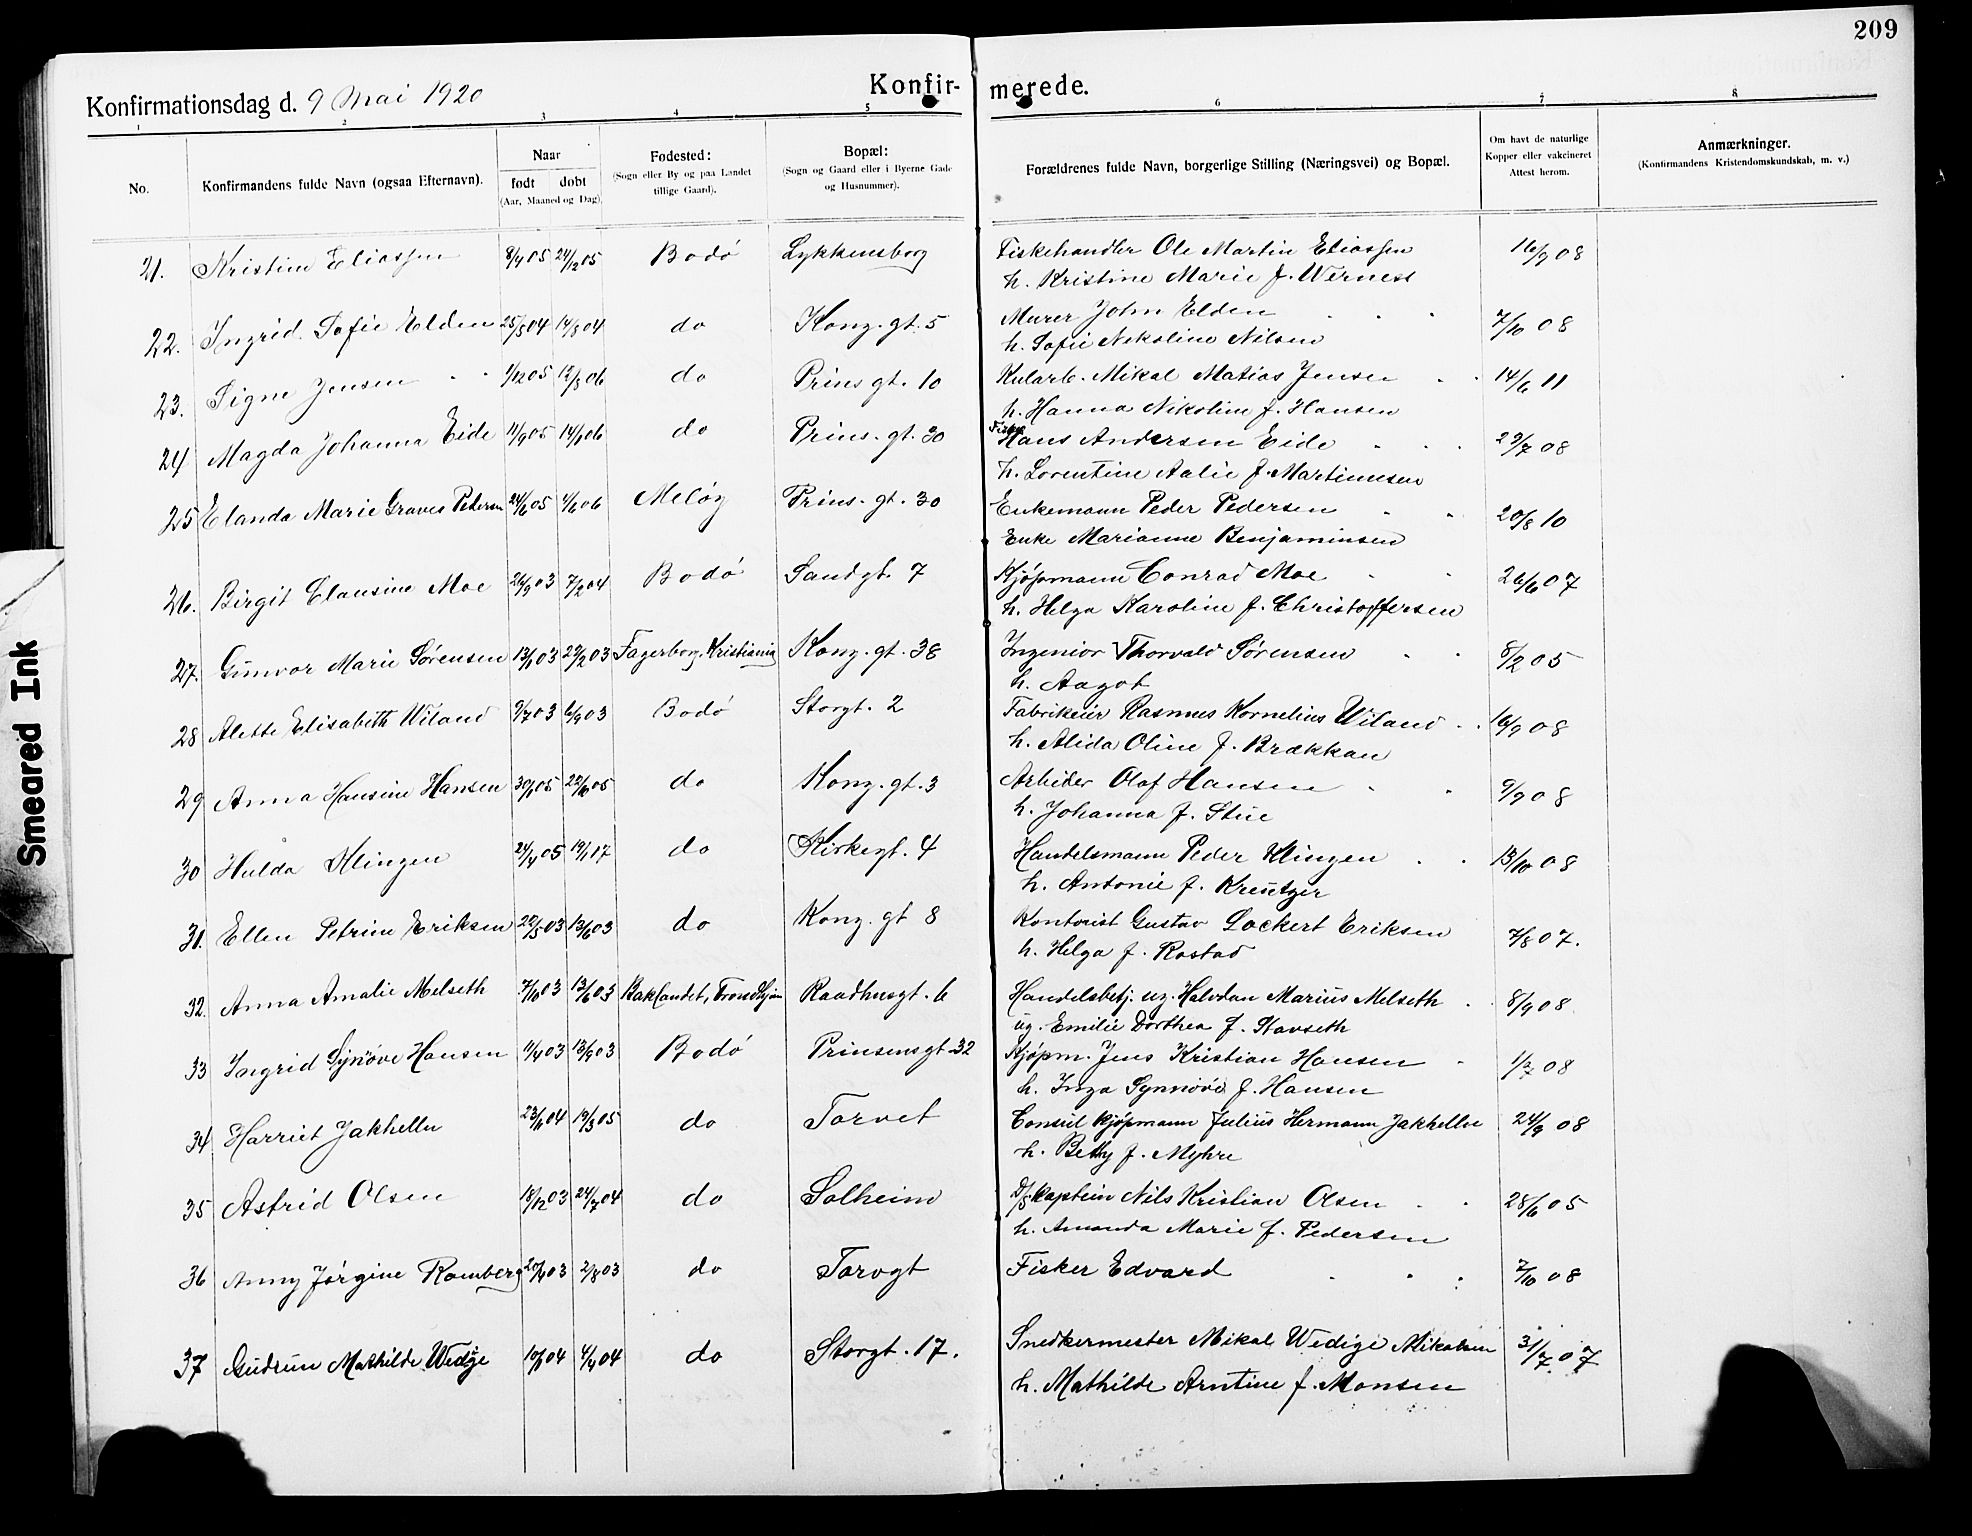 209
Konfirmationsdag d. 9 Mai 1920
Konfir- merede.
1 2 3 4 5 6 7 8
No.
Konfirmandens fulde Navn (ogsaa Efternavn).
Naar
født døbt
(Aar, Maaned og Dag).
Fødested:
(Sogn eller By og paa Landet
tillige Gaard).
Bopæl:
(Sogn og Gaard eller i Byerne Gade
og Husnummer).
Forældrenes fulde Navn, borgerlige Stilling (Næringsvei) og Bopæl.
Om havt de naturlige
Kopper eller vakcineret
Attest herom.
Anmærkninger.
(Konfirmandens Kristendomskundskab, m. v.)
21. Kristine Eliassen 8/4 05 24/12 05 Bodø Lykkensborg Fiskehandler Ole Martin Eliassen 16/9 08
h. Kristine Marie f. Werness
22. Ingrid Sofie Elden 25/5 04 14/8 04 do Kong. gt. 5 Murer John Elden 7/10 08
h. Sofie Nikoline Nilsen
23. Signe Jensen 1/12 05 12/8 06 do Prins gt. 10 Kularb. Mikal Matias Jensen 14/6 11
h. Hanna Nikoline f. Hansen
24 Magda Johanna Eide 11/9 05 do Prins. gt. 30 Fisker Hans Andersen Eide 29/7 08
h. Lorentine Aalie f. Martinusen
25 Elanda Marie Graves Pedersen 24/6 05 Meløy Prins. gt. 30 Enkemann Peder Pedersen 20/8 10
Enke Marianne Benjaminsen
26. Birgit Clausine Moe 26/9 03 7/2 04 Bodø Sandgt. 7 Kjøpmann Conrad Moe 26/6 07
h. Helga Karoline f. Christoffersen
27. Gunvor Marie Sørensen 13/1 03 22/2 03 Fagerborg, Kristiania Kong. gt. 38 Ingeniør Thorvald Sørensen 8/2 05
h. Aagot
28 Alette Elisabeth Wiland 9/7 03 6/9 03 Bodø Storgt. 2 Fabrikeier Rasmus Kornelius Wiland 16/9 08
h. Alida Oline f. Brækkan
29 Anna Hansine Hansen 30/1 05 22/10 05 do Kong. gt. 3 Arbeider Olaf Hansen 9/9 08
h. Johanna f. Stue
30 Hulda Klingen 24/4 05 19/1 17 do Kirkegt. 4 Handelsmann Peder Klingen 13/10 08
h. Antonie f. Kreutzer
31. Ellen Petrine Eriksen 22/5 03 13/6 03 do Kong. gt 8 Kontorist Gustav Lockert Eriksen 7/8 07.
h. Helga f. Rostad
32. Anna Amalie Melseth 13/6 03 Baklandet, Trondhjem Raadhusgt. 6 Handelsbetj. ug. Halvdan Marius Melseth 8/9 08
ug. Emilie Dorthea f. Stavseth
33 Ingrid Synøve Hansen 11/4 03 13/9 03 Bodø Prinsensgt 32 Kjøpm. Jens Kristian Hansen 1/7 08
h. Inga Synnøve f. Hansen
34 Harriet Jakhelln 23/11 04 19/3 05 do Torvet Consul kjøpmann Julius Hermann Jakhelln 24/9 08
h. Betty f. Myhre
35 Astrid Olsen 18/12 03 24/7 04 do Solheim D/S kaptein Nils Kristian Olsen 28/6 05
h. Amanda Marie f. Pedersen
36 Anny Jørgine Romberg 20/4 03 2/8 03 do Torvgt Fisker Edvard 7/10 08
37 Gudrun Mathilde Wedige 10/1 04 4/4 04 do Storgt. 17. Snedkermester Mikal Wedige Mikalsen 31/7 07
h. Mathilde Arntine f. Monsen
Smeared Ink